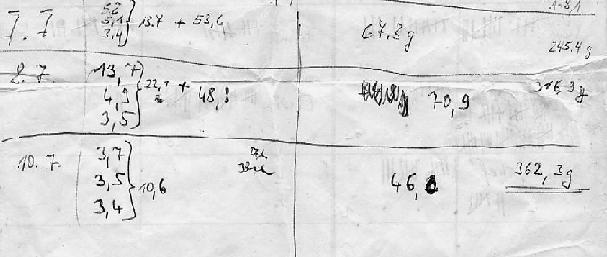 7. 7 5,2
5,1 } 13.7 + 53,6 67,3 g
3,4
245.4 g
8. 7. 13,7
4,9 } 22,1 + 48,8 70,9 316,3 g
3,5
10. 7. 3,7
3,5 } 10,6 46,0 362,3 g
3,4